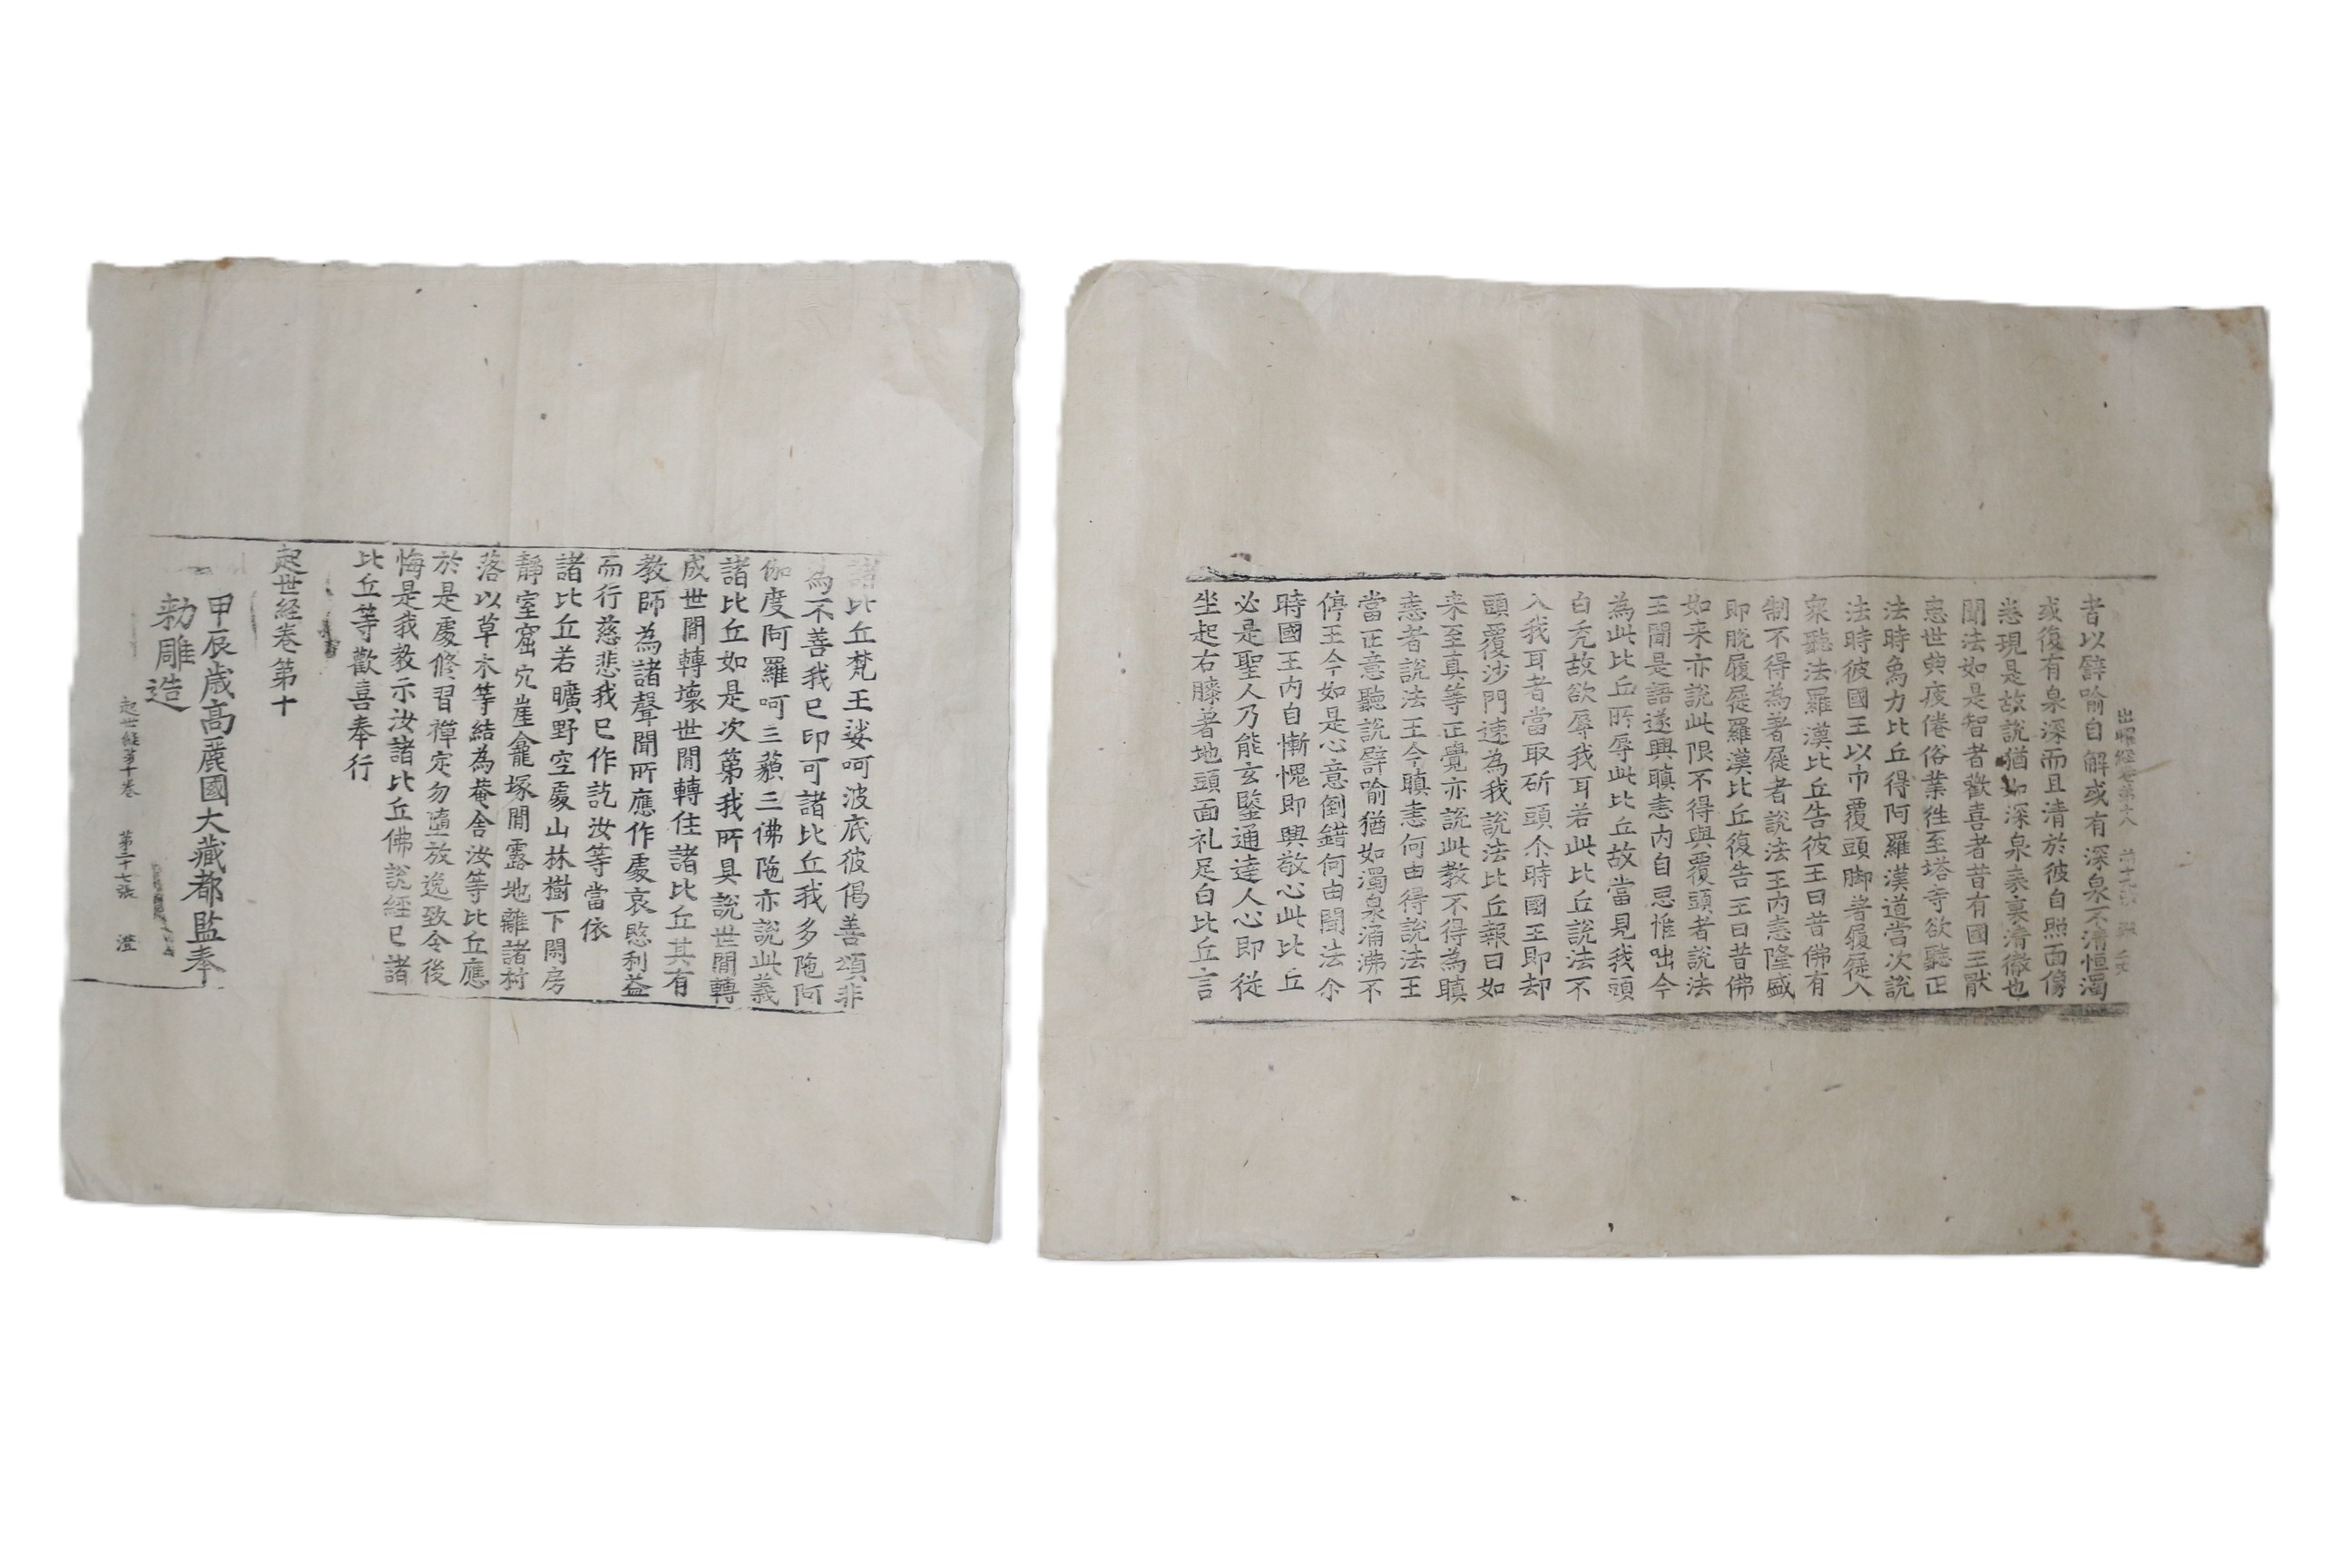 出曜経卷第
者以譬喻自解或有深泉不清恒濁
或復有泉深而且清於彼自照面像
悉現是故說猶如深泉表裏清徹也
聞法如是智者歡喜者昔有國王猒
患世典疲倦俗業徃至塔寺欲聽正
法時鳥力比丘得阿羅漢道當次說
法時彼國王以巾覆頭脚著履屣入
衆聽法羅漢比丘告彼王曰昔佛有
制不得為著屣者說法王內恚隆盛
即脫履屣羅漢比丘復告王曰昔佛
如来亦說此限不得與覆頭者說法
王聞是語遂興瞋恚內自思惟咄今
為此比丘所辱此比丘故當見我頭
白禿故欲辱我耳若此比丘說法不
入我耳者當取斫頭尒時國王即却
頭覆沙門速為我說法比丘報曰如
来至真等正覺亦說此教不得為瞋
恚者說法王今瞋恚何由得說法王
當正意聽說譬喻猶如濁泉涌沸不
停王今如是心意倒錯何由聞法尒
時國王內自慚愧即興敬心此比丘
必是聖人乃能玄鑒通達人心即從
坐起右膝著地頭面礼足白比丘言
諸比丘梵王娑呵波底彼偈善頌非
為不善我已印可諸比丘我多陁阿
伽度阿羅呵三藐三佛陁亦說此義
諸比丘如是次第我所具說世閒轉
成世閒轉壞世閒轉住諸比丘其有
教師為諸聲聞所應作處哀愍利益
而行慈悲我已作訖汝等當依
諸比丘若曠野空處山林樹下閑房
靜室窟穴崖龕塚閒露地離諸村
落以草木等結為菴舍汝等比丘應
於是處修習禪定勿墮放逸致令後
悔是我教示汝諸比丘佛說經已諸
比丘等歡喜奉行
起世経卷第十
甲辰歲高麗國大藏都監奉
勑雕造
起世経第十卷 第二十七張 澄